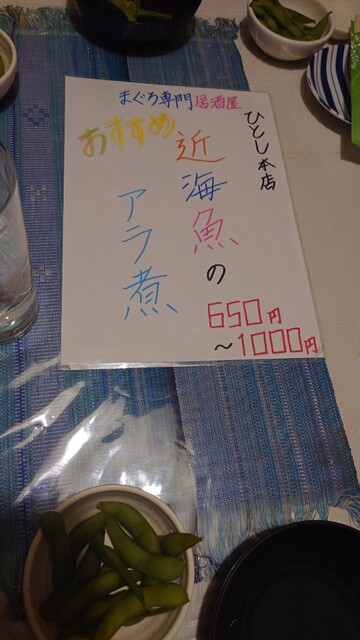 まぐろ専門居酒屋
ひとし本店
おすすめ
近海魚の
アラ煮
650円
～1000円